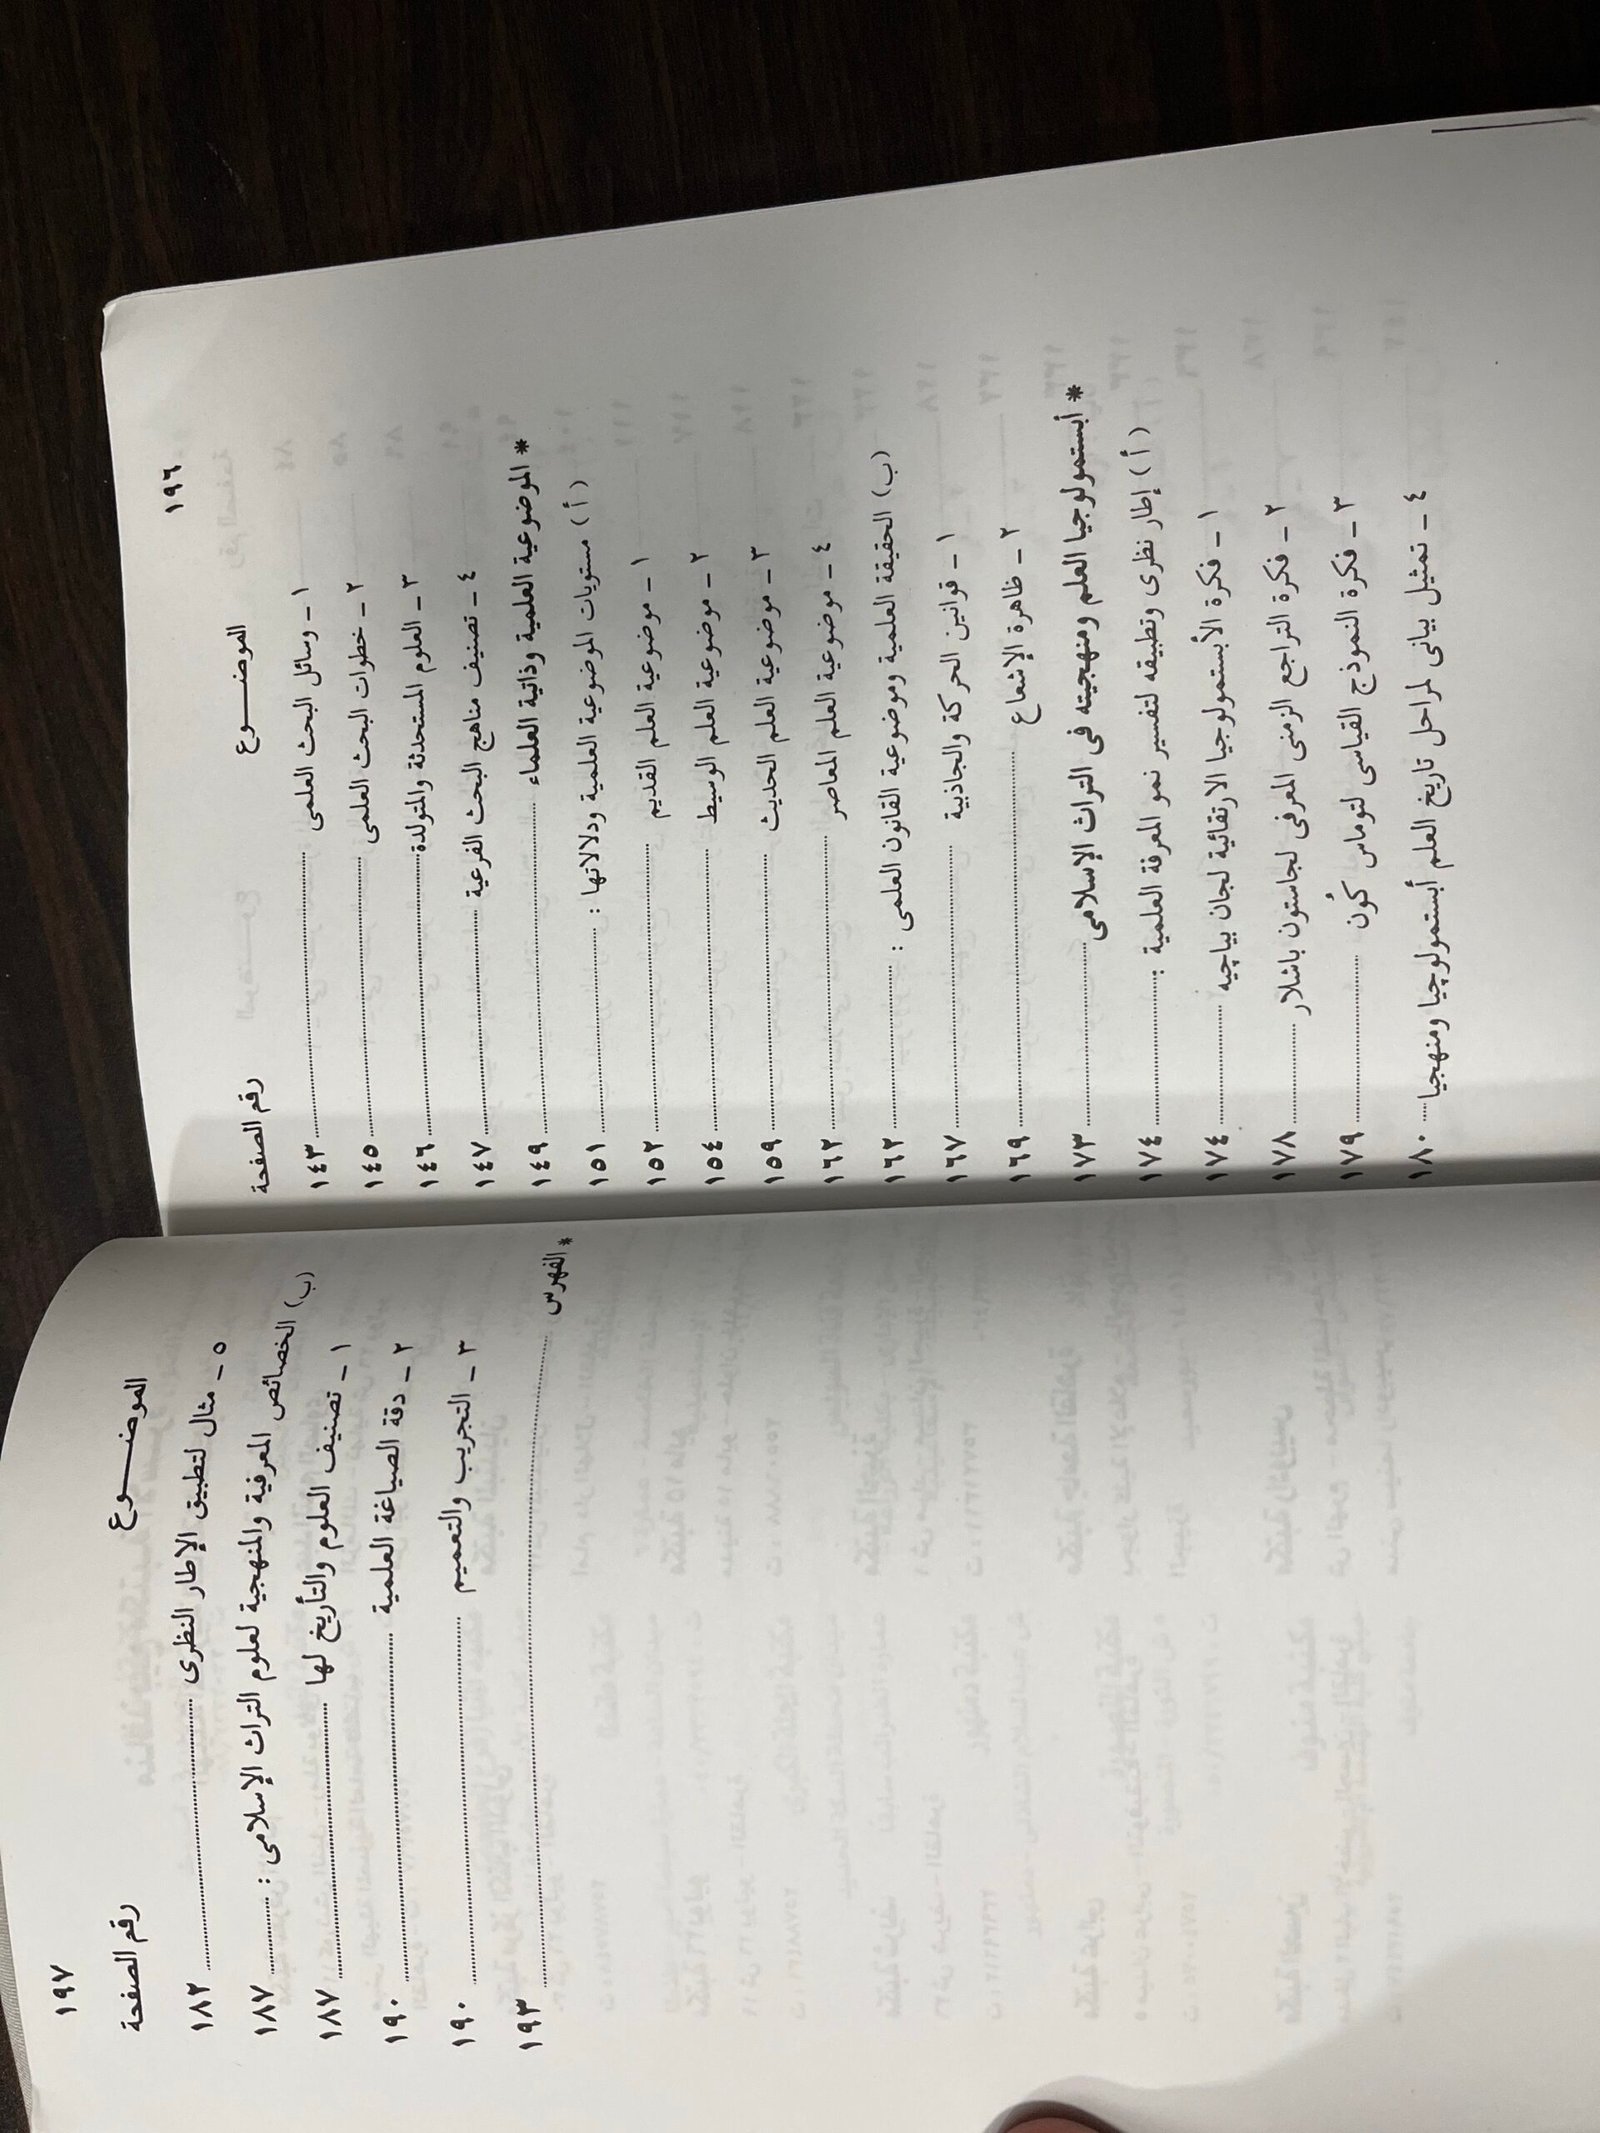 ١٩٦
الموضـــوع رقم الصفحة
١ ـ وسائل البحث العلمى ........ ١٤٣
٢ ـ خطوات البحث العلمى ........ ١٤٥
٣ ـ العلوم المستحدثة والمتولدة ........ ١٤٦
٤ ـ تصنيف مناهج البحث الفرعية ........ ١٤٧
* الموضوعية العلمية وذاتية العلماء ........ ١٤٩
( أ ) مستويات الموضوعية العلمية ودلالاتها : ........ ١٥١
١ ـ موضوعية العلم القديم ........ ١٥٢
٢ ـ موضوعية العلم الوسيط ........ ١٥٤
٣ ـ موضوعية العلم الحديث ........ ١٥٩
٤ ـ موضوعية العلم المعاصر ........ ١٦٢
(ب) الحقيقة العلمية وموضوعية القانون العلمى : ........ ١٦٢
١ ـ قوانين الحركة والجاذبية ........ ١٦٧
٢ ـ ظاهرة الإشعاع ........ ١٦٩
* أبستمولوجيا العلم ومنهجيته فى التراث الإسلامى ........ ١٧٣
( أ ) إطار نظرى وتطبيقه لتفسير نمو المعرفة العلمية : ........ ١٧٤
١ ـ فكرة الأبستمولوجيا الارتقائية لجان بياچيه ........ ١٧٤
٢ ـ فكرة التراجع الزمنى المعرفى لجاستون باشلار ........ ١٧٨
٣ ـ فكرة النموذج القياسى لتوماس كُون ........ ١٧٩
٤ ـ تمثيل بيانى لمراحل تاريخ العلم أبستمولوچيا ومنهجيا .... ١٨٠
١٩٧
الموضـــوع رقم الصفحة
٥ ـ مثال لتطبيق الإطار النظرى ........ ١٨٢
(ب) الخصائص المعرفية والمنهجية لعلوم التراث الإسلامى : ........ ١٨٧
١ ـ تصنيف العلوم والتأريخ لها ........ ١٨٧
٢ ـ دقة الصياغة العلمية ........ ١٩٠
٣ ـ التجريب والتعميم ........ ١٩٠
* الفهرس ........ ١٩٣